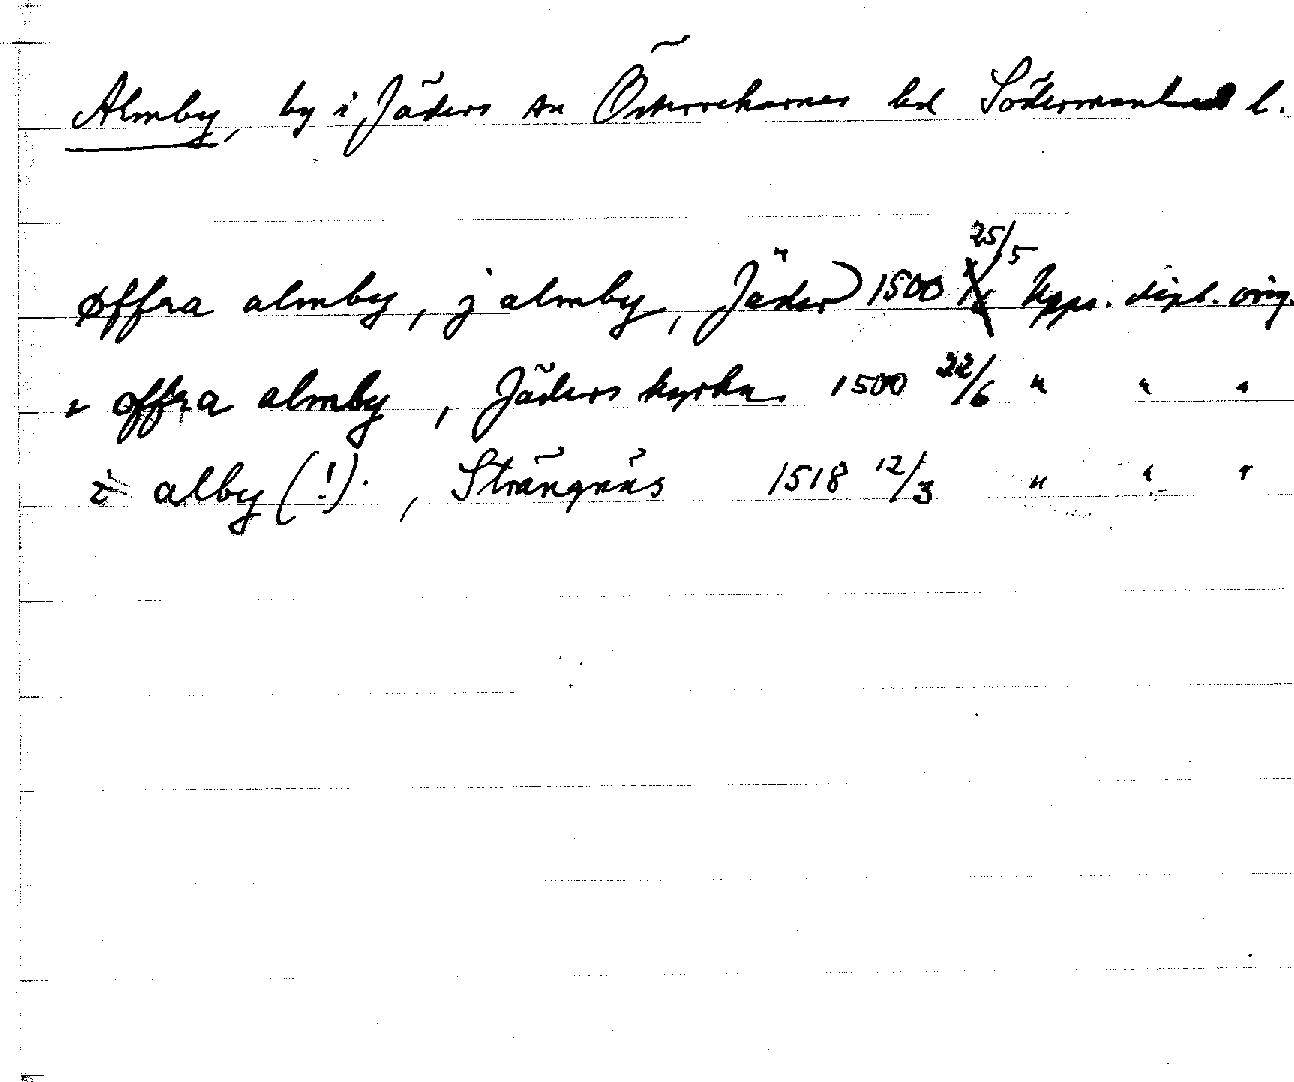 Almby, by i Jäders sn Österrekarnes hd Södermanland l.
øffra almby, j almby, Jäder) 1500 25/5 Upps. dipl. orig.
offra almby, Jäders kyrka. 1500 22/6 " " "
i alby (!). , Strängnäs 1518 12/3 " " "